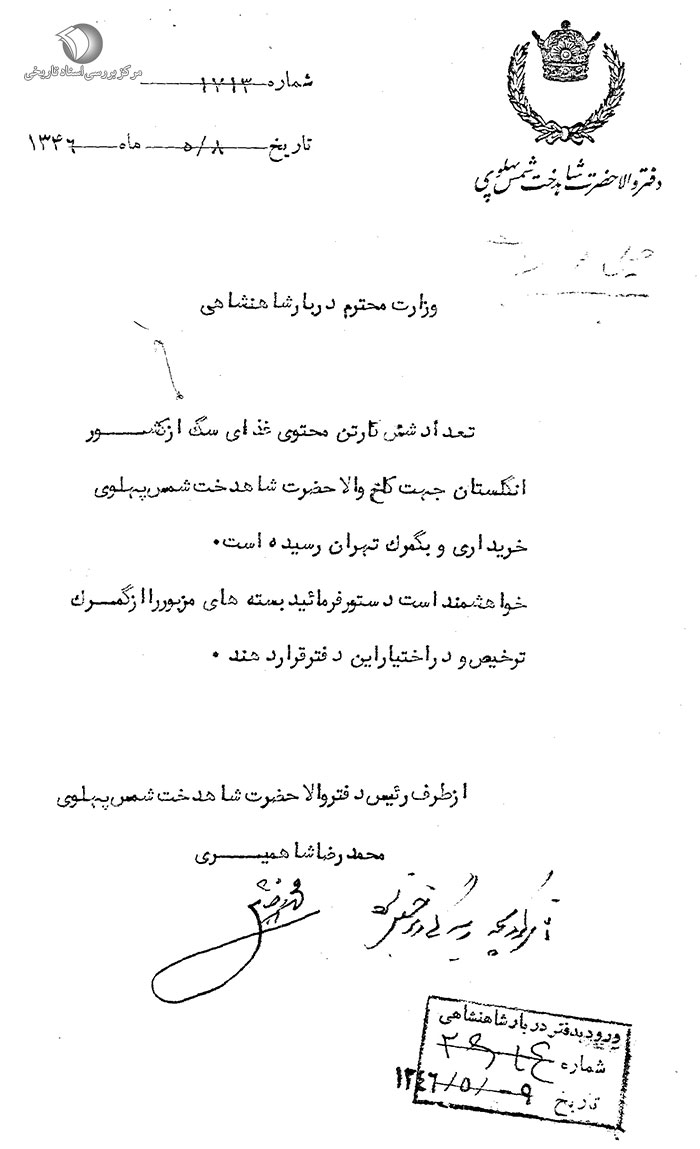 مرکز بررسی اسناد تاریخی
دفتر والاحضرت شاهدخت شمس پهلوی
شماره ۱۷۱۳
تاریخ ۵/۸ ماه ۱۳۴۶
وزارت محترم دربار شاهنشاهی
تعداد شش کارتن محتوی غذای سگ از کشور
انگلستان جهت کاخ والاحضرت شاهدخت شمس پهلوی
خریداری و بگمرك تهران رسیده است.
خواهشمند است دستور فرمائید بسته های مزبور را از گمرك
ترخیص و در اختیار این دفتر قرار دهند.
از طرف رئیس دفتر والاحضرت شاهدخت شمس پهلوی
محمد رضا شاهمیری
ورود بدفتر دربار شاهنشاهی
شماره
تاریخ ۱۳۴۶/۵/۰۹